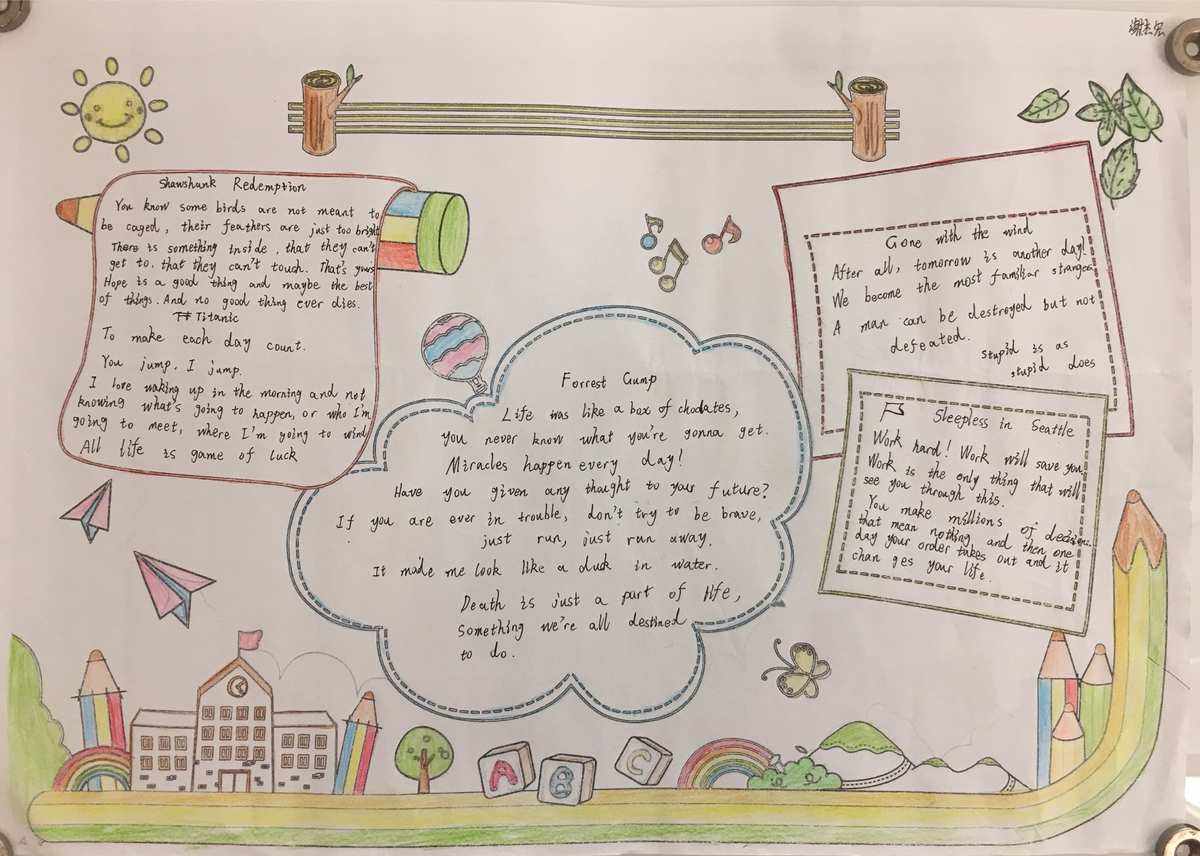 谢杰宏
Shawshunk Redemption
You know some birds are not meant to
be caged, their feathers are just too bright
There is something inside, that they can't
get to. that they can't touch. That's yours
Hope is a good thing and maybe the best
of things. And no good thing ever dies.
Titanic
To make each day count.
You jump. I jump.
I love waking up in the morning and not
knowing what's going to happen, or who I'm
going to meet, where I'm going to wind
All life is game of luck
Forrest Gump
Life was like a box of choclates,
you never know what you're gonna get.
Miracles happen every day!
Have you given any thought to your future?
If you are ever in trouble, don't try to be brave,
just run, just run away.
It made me look like a duck in water.
Death is just a part of life,
Something we're all destined
to do.
Gone with the wind
After all, tomorrow is another day!
We become the most familiar strangers
A man can be destroyed but not
defeated.
stupid is as
stupid does
Sleepless in Seattle
Work hard! Work will save you.
Work is the only thing that will
see you through this.
You make millions of decisions
that mean nothing and then one
day your order takes out and it
chan ges your life.
A B C